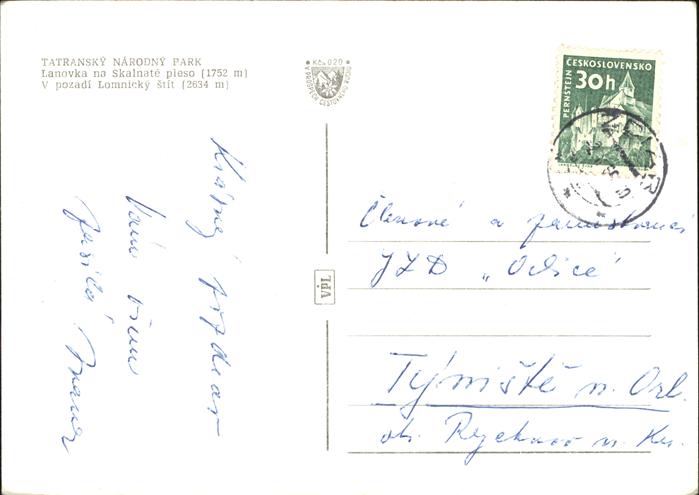 TATRANSKÝ NÁRODNÝ PARK
Lanovka na Skalnaté pleso (1752 m)
V pozadí Lomnický štít (2634 m)
Kčs 0,20
VPL
ČESKOSLOVENSKO
PERNSTEJN
30h
Krásný pozdrav
Vám všem
posílá
Členové a zaměstnanci
JZD „Orlice"
Týniště n. Orl.
ok. Rychnov n. Kn.